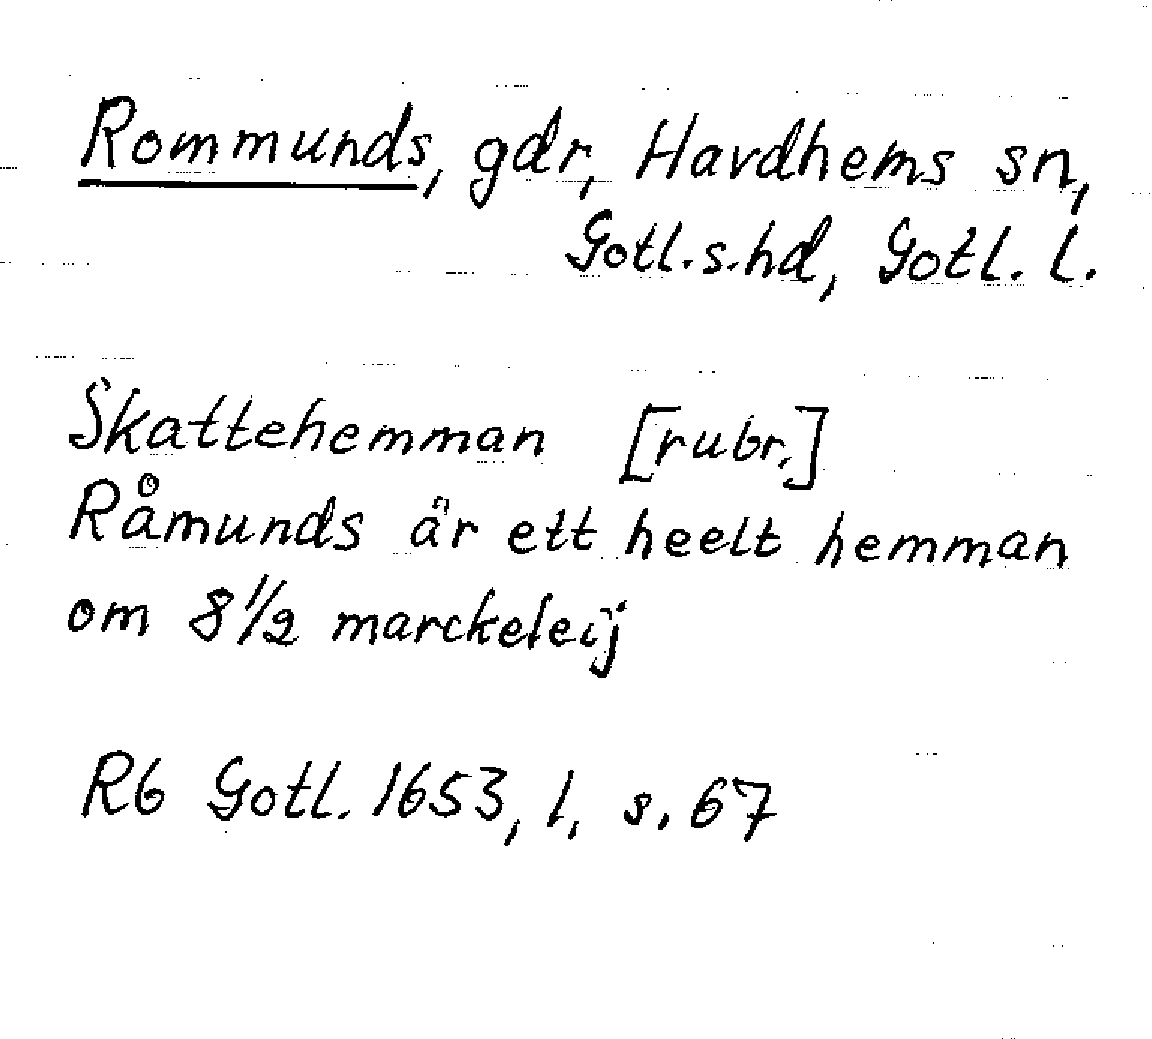 Rommunds, gdr, Havdhems sn,
Gotl.s.hd, Gotl. l.
Skattehemman [rubr.]
Råmunds är ett heelt hemman
om 8 1/2 marckeleij
Rb Gotl. 1653, 1, s. 67